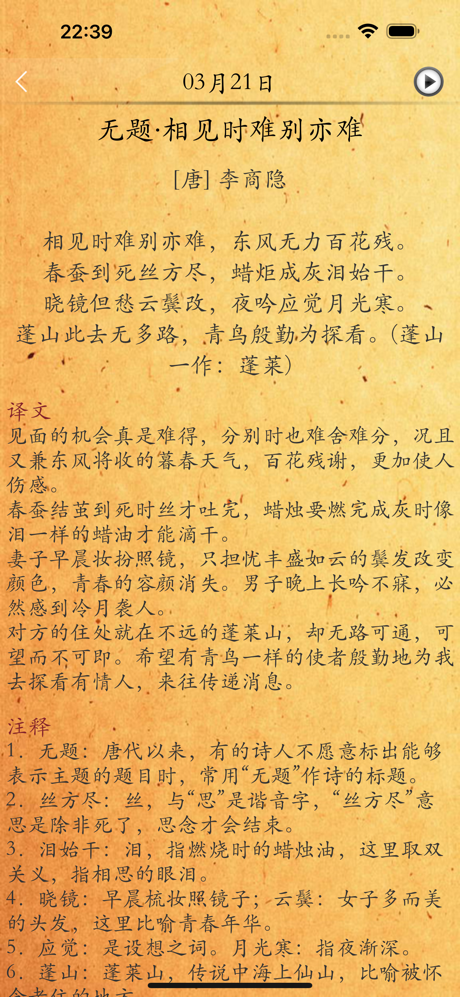 22:39
03月21日
无题·相见时难别亦难
[唐] 李商隐
相见时难别亦难，东风无力百花残。
春蚕到死丝方尽，蜡炬成灰泪始干。
晓镜但愁云鬓改，夜吟应觉月光寒。
蓬山此去无多路，青鸟殷勤为探看。（蓬山
一作：蓬莱）
译文
见面的机会真是难得，分别时也难舍难分，况且
又兼东风将收的暮春天气，百花残谢，更加使人
伤感。
春蚕结茧到死时丝才吐完，蜡烛要燃完成灰时像
泪一样的蜡油才能滴干。
妻子早晨妆扮照镜，只担忧丰盛如云的鬓发改变
颜色，青春的容颜消失。男子晚上长吟不寐，必
然感到冷月袭人。
对方的住处就在不远的蓬莱山，却无路可通，可
望而不可即。希望有青鸟一样的使者殷勤地为我
去探看有情人，来往传递消息。
注释
1．无题：唐代以来，有的诗人不愿意标出能够
表示主题的题目时，常用“无题”作诗的标题。
2．丝方尽：丝，与“思”是谐音字，“丝方尽”意
思是除非死了，思念才会结束。
3．泪始干：泪，指燃烧时的蜡烛油，这里取双
关义，指相思的眼泪。
4．晓镜：早晨梳妆照镜子；云鬓：女子多而美
的头发，这里比喻青春年华。
5．应觉：是设想之词。月光寒：指夜渐深。
6．蓬山：蓬莱山，传说中海上仙山，比喻被怀
念者住的地方。